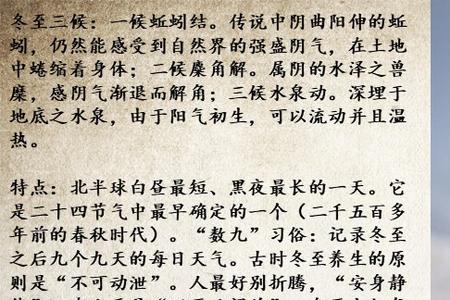 冬至三候：一候蚯蚓结。传说中阴曲阳伸的蚯
蚓，仍然能感受到自然界的强盛阴气，在土地
中蜷缩着身体；二候麋角解。属阴的水泽之兽
麋，感阴气渐退而解角；三候水泉动。深埋于
地底之水泉，由于阳气初生，可以流动并且温
热。
特点：北半球白昼最短、黑夜最长的一天。它
是二十四节气中最早确定的一个（二千五百多
年前的春秋时代）。“数九”习俗：记录冬至
之后九个九天的每日天气。古时冬至养生的原
则是“不可动泄”。人最好别折腾，“安身静